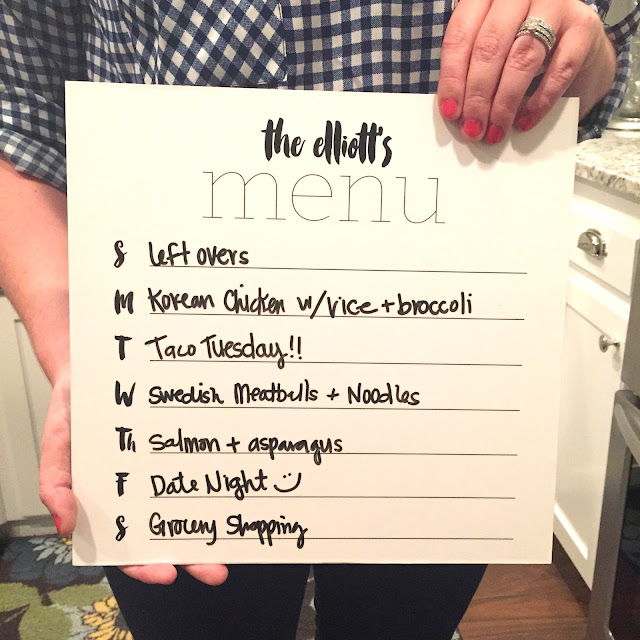 the elliott's
menu
S left overs
M Korean Chicken w/rice + broccoli
T Taco Tuesday!!
W Swedish Meatballs + Noodles
Th Salmon + asparagus
F Date Night
S Grocery Shopping